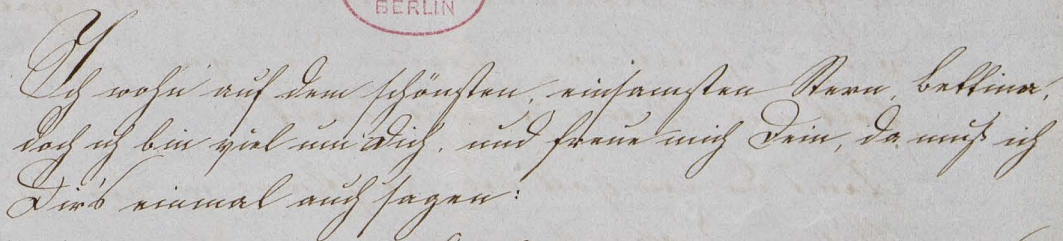 BERLIN
Ich wohn auf dem schönsten, einsamsten Stern, Bettina,
doch ich bin viel um Dich, und freue mich Dein, da muß ich
Dir's einmal auch sagen: